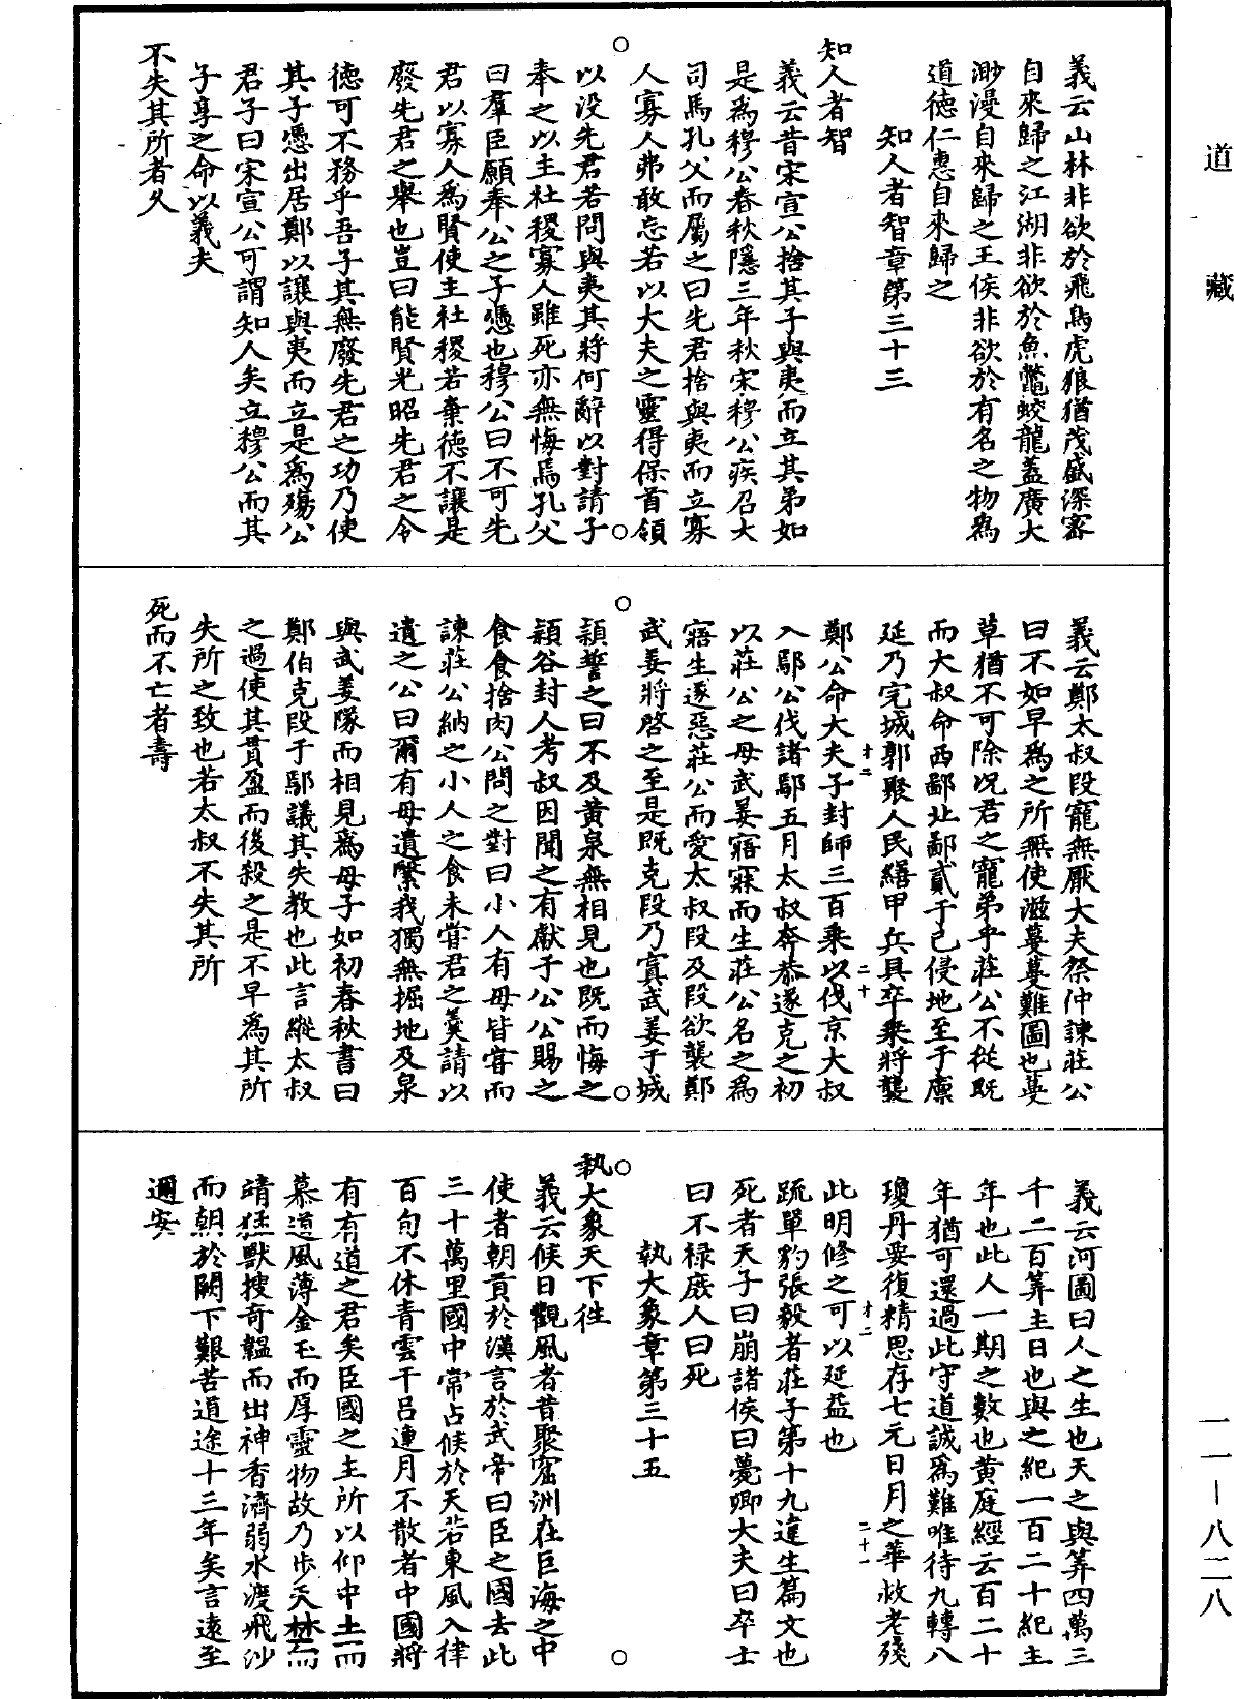 道藏
義云山林非欲於飛鳥虎狼猶茂盛深密
自來歸之江湖非欲於魚鼈蛟龍蓋廣大
渺漫自來歸之王侯非欲於有名之物爲
道德仁惠自來歸之
知人者智章第三十三
知人者智
義云昔宋宣公捨其子與夷而立其弟如
是爲穆公春秋隱三年秋宋穆公疾召大
司馬孔父而屬之曰先君捨與夷而立寡
人寡人弗敢忘若以大夫之靈得保首領
以没先君若問與夷其將何辭以對請子
奉之以主社稷寡人雖死亦無悔焉孔父
曰羣臣願奉公之子憑也穆公曰不可先
君以寡人爲賢使主社稷若棄德不讓是
廢先君之舉也豈曰能賢光昭先君之令
德可不務乎吾子其無廢先君之功乃使
其子憑出居鄭以讓與夷而立是爲殤公
君子曰宋宣公可謂知人矣立穆公而其
子享之命以義夫
不失其所者久
義云鄭太叔段寵無厭大夫祭仲諫莊公
曰不如早爲之所無使滋蔓蔓難圖也蔓
草猶不可除况君之寵弟乎莊公不從既
而大叔命西鄙北鄙貳于己侵地至于廪
延乃完城郭聚人民繕甲兵具卒乘將襲
十二
二十
鄭公命大夫子封師三百乘以伐京大叔
入鄢公伐諸鄢五月太叔奔恭遂克之初
以莊公之母武姜寤寐而生莊公名之爲
寤生遂惡莊公而愛太叔段及段欲襲鄭
武姜將啓之至是既克段乃寘武姜于城
潁誓之曰不及黃泉無相見也既而悔之
潁谷封人考叔因聞之有獻于公公賜之
食食捨肉公問之對曰小人有母皆甞而
諫莊公納之小人之食未甞君之羹請以
遺之公曰爾有母遺繄我獨無掘地及泉
與武姜隊而相見爲母子如初春秋書曰
鄭伯克段于鄢議其失教也此言縱太叔
之過使其貫盈而後殺之是不早爲其所
失所之致也若太叔不失其所
死而不亡者壽
義云河圖曰人之生也天之與筭四萬三
千二百筭主日也與之紀一百二十紀主
年也此人一期之數也黄庭經云百二十
年猶可還過此守道誠爲難唯待九轉八
瓊丹要復精思存七元日月之華救老殘
十二
二十一
此明修之可以延益也
䟽單豹張毅者莊子第十九達生篇文也
死者天子曰崩諸侯曰薨卿大夫曰卒士
曰不禄庶人曰死
執大象章第三十五
執大象天下往
義云候日觀風者昔聚窟洲在巨海之中
使者朝貢於漢言於武帝曰臣之國去此
三十萬里國中常占候於天若東風入律
百旬不休青雲干吕連月不散者中國將
有有道之君矣臣國之主所以仰中土而
慕道風薄金玉而厚靈物故乃步天林而
請猛獸搜奇韞而出神香濟弱水渡飛沙
而朝於闕下艱苦道途十三年矣言遠至
邇安
一一—八二八